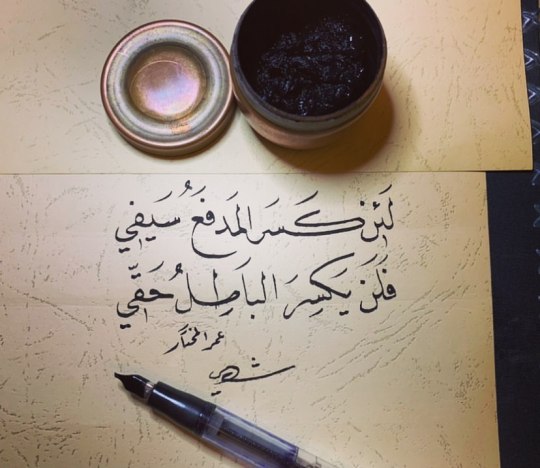 لَئِنْ كَسَرَ المَدفَعُ سَيفِي
فَلَن يَكسِرَ البَاطِلُ حَقِّي
عمر المختار